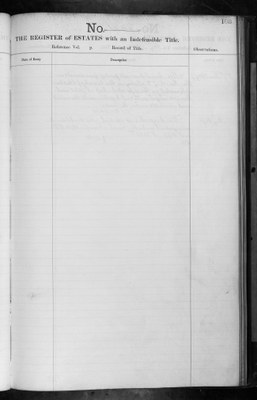 No.
THE REGISTER of ESTATES with an Indefeasible Title.
Reference Vol. p. Record of Title.
Observations.
Date of Entry Description